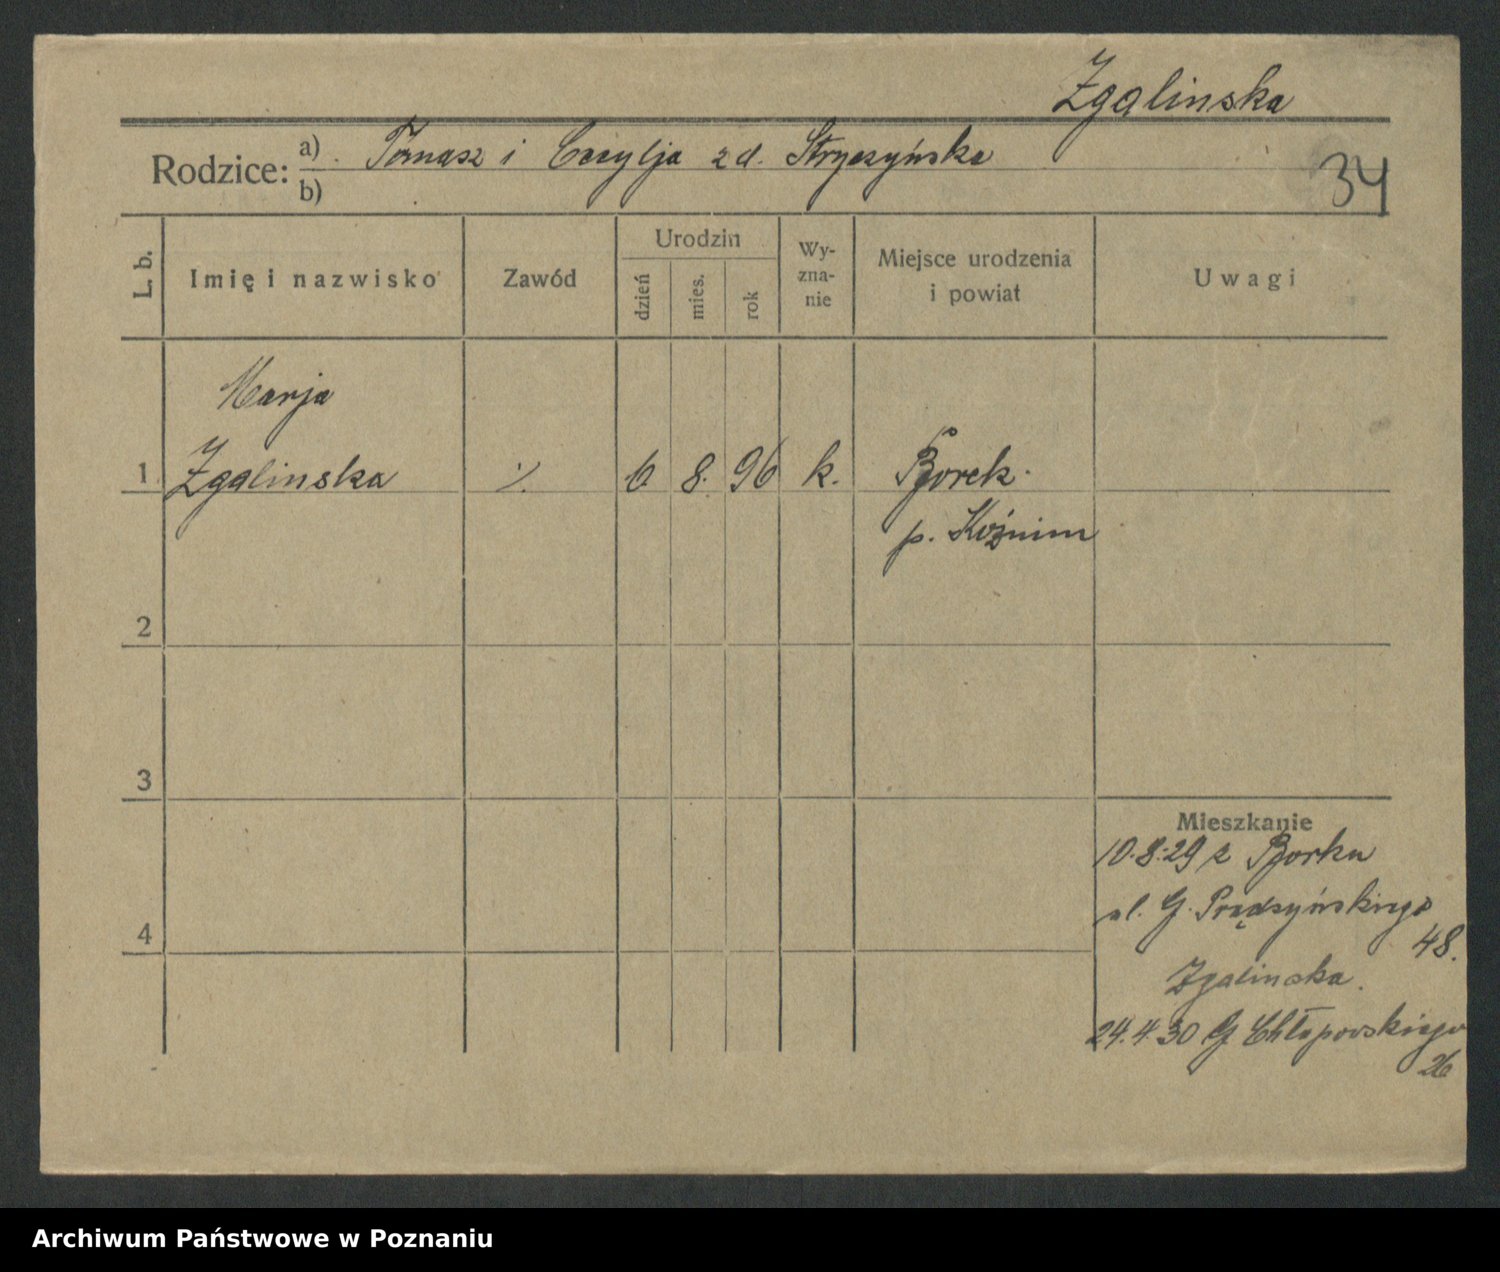 Zgalinska
Rodzice: a) Tomasz i Cecylja z d. Stryczyńska
b)
34
L. b.
Imię i nazwisko
Zawód
Urodzin
dzień
mies.
rok
Wy-
zna-
nie
Miejsce urodzenia
i powiat
Uwagi
Marja
1 Zgalinska ·/. 6. 8. 96 k. Borek.
p. Koźmin
2
3
4
Mieszkanie
10.8.29 z Borku
ul. G. Prądzyńskiego
48.
Zgalinska.
24.4.30 G Chłapowskiego
26
Archiwum Państwowe w Poznaniu